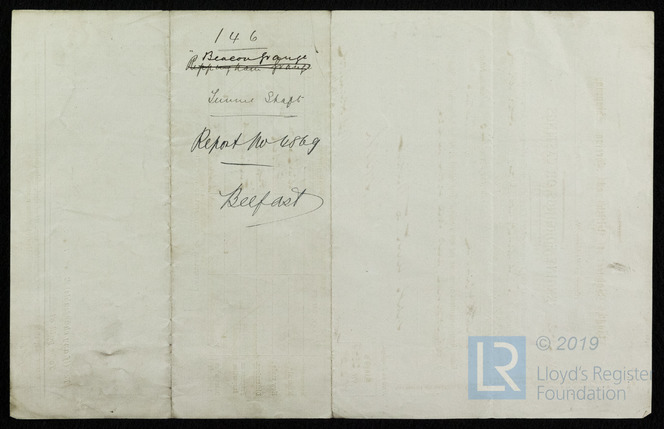 146
Beacon Grange
"Rippingham Grange"
Tunnel Shaft
Report No 6869
Belfast
LR
© 2019
Lloyd's Register
Foundation